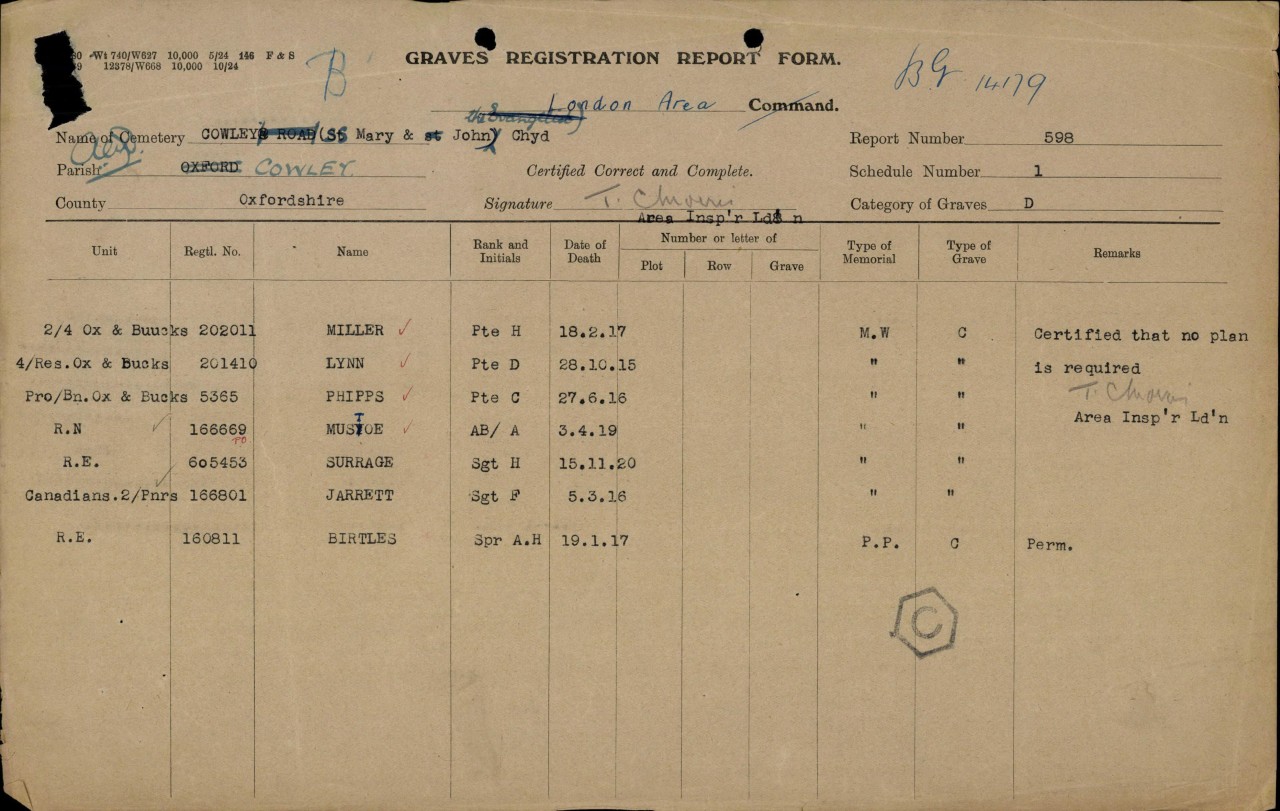 Wt 740/W627 10,000 5/24 146 F & S
12378/W668 10,000 10/24
B
GRAVES REGISTRATION REPORT FORM.
BG 14179
London Area Command.
the Evangelist)
Name of Cemetery COWLEY ROAD (SS Mary & st John) Chyd
Report Number 598
Parish OXFORD COWLEY.
Certified Correct and Complete.
Schedule Number 1
County Oxfordshire
Signature
Area Insp'r Ld'n
Category of Graves D
Unit Regtl. No. Name Rank and Initials Date of Death Number or letter of Plot Row Grave Type of Memorial Type of Grave Remarks
2/4 Ox & Buucks 202011 MILLER ✓ Pte H 18.2.17 M.W C Certified that no plan
4/Res.Ox & Bucks 201410 LYNN ✓ Pte D 28.10.15 " " is required
Pro/Bn.Ox & Bucks 5365 PHIPPS ✓ Pte C 27.6.16 " "
Area Insp'r Ld'n
R.N ✓ 166669 MUSTOE ✓ AB/ A 3.4.19 " "
PO
R.E. 605453 SURRAGE Sgt H 15.11.20 " "
Canadians.2/Pnrs ✓ 166801 JARRETT Sgt F 5.3.16 " "
R.E. 160811 BIRTLES Spr A.H 19.1.17 P.P. C Perm.
C